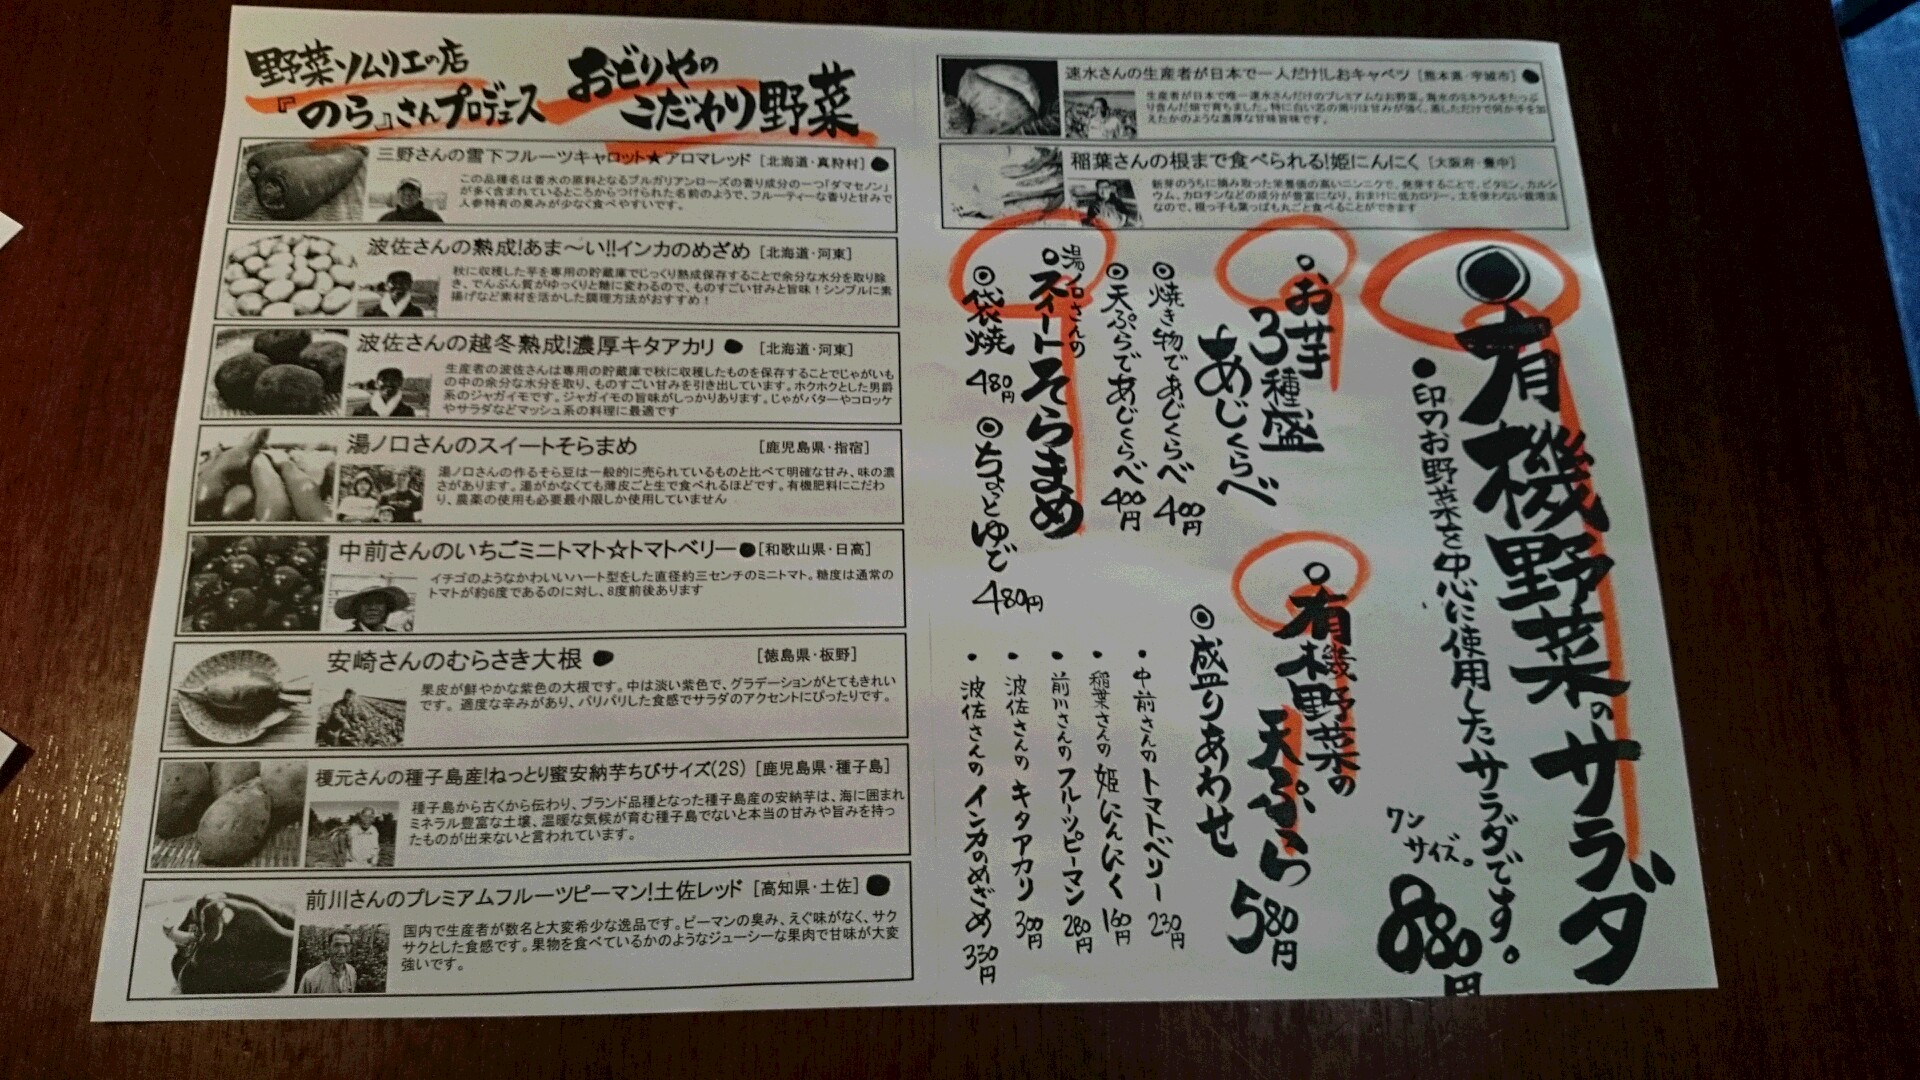 野菜ソムリエの店
『のら』さんプロデュース
おどりやの
こだわり野菜
三野さんの雪下フルーツキャロット★アロマレッド [北海道・真狩村] ●
この品種名は香水の原料となるブルガリアンローズの香り成分の一つ「ダマセノン」
が多く含まれているところからつけられた名前のようで、フルーティーな香りと甘みで
人参特有の臭みが少なく食べやすいです。
波佐さんの熟成!あま〜い!!インカのめざめ [北海道・河東]
秋に収穫した芋を専用の貯蔵庫でじっくり熟成保存することで余分な水分を取り除
き、でんぷん質がゆっくりと糖に変わるので、ものすごい甘みと旨味！シンプルに素
揚げなど素材を活かした調理方法がおすすめ！
波佐さんの越冬熟成!濃厚キタアカリ ● [北海道・河東]
生産者の波佐さんは専用の貯蔵庫で秋に収穫したものを保存することでじゃがいも
の中の余分な水分を取り、ものすごい甘みを引き出しています。ホクホクとした男爵
系のジャガイモです。ジャガイモの旨味がしっかりあります。じゃがバターやコロッケ
やサラダなどマッシュ系の料理に最適です
湯ノ口さんのスイートそらまめ [鹿児島県・指宿]
湯ノ口さんの作るそら豆は一般的に売られているものと比べて明確な甘み、味の濃
さがあります。湯がかなくても薄皮ごと生で食べれるほどです。有機肥料にこだわ
り、農薬の使用も必要最小限しか使用していません
中前さんのいちごミニトマト☆トマトベリー● [和歌山県・日高]
イチゴのようなかわいいハート型をした直径約三センチのミニトマト。糖度は通常の
トマトが約6度であるのに対し、8度前後あります
安崎さんのむらさき大根 ● [徳島県・板野]
果皮が鮮やかな紫色の大根です。中は淡い紫色で、グラデーションがとてもきれい
です。適度な辛みがあり、パリパリした食感でサラダのアクセントにぴったりです。
榎元さんの種子島産!ねっとり蜜安納芋ちびサイズ(2S) [鹿児島県・種子島]
種子島から古くから伝わり、ブランド品種となった種子島産の安納芋は、海に囲まれ
ミネラル豊富な土壌、温暖な気候が育む種子島でないと本当の甘みや旨みを持っ
たものが出来ないと言われています。
前川さんのプレミアムフルーツピーマン!土佐レッド [高知県・土佐] ●
国内で生産者が数名と大変希少な逸品です。ピーマンの臭み、えぐ味がなく、サク
サクとした食感です。果物を食べているかのようなジューシーな果肉で甘味が大変
強いです。
速水さんの生産者が日本で一人だけ!しおキャベツ [熊本県・宇城市] ●
生産者が日本で唯一速水さんだけのプレミアムなお野菜。海水のミネラルをたっぷ
り含んだ畑で育ちました。特に白い芯の周りは甘みが強く、蒸しただけで何か手を加
えたかのような濃厚な甘味旨味です。
稲葉さんの根まで食べられる!姫にんにく [大阪府・豊中]
新芽のうちに摘み取った栄養価の高いニンニクで、発芽することで、ビタミン、カルシ
ウム、カロチンなどの成分が豊富になり、おまけに低カロリー。土を使わない栽培法
なので、根っ子も葉っぱも丸ごと食べることができます
●有機野菜のサラダ
●印のお野菜を中心に使用したサラダです。
ワン
サイズ。
880円
お芋
3種盛
あじくらべ
◎焼き物であじくらべ 400円
◎天ぷらであじくらべ 400円
湯ノ口さんの
スイートそらまめ
◎袋焼 480円
◎ちょっとゆで 480円
有機野菜の
天ぷら
◎盛りあわせ 580円
・中前さんのトマトベリー 230円
・稲葉さんの姫にんにく 160円
・前川さんのフルーツピーマン 280円
・波佐さんのキタアカリ 300円
・波佐さんのインカのめざめ 330円